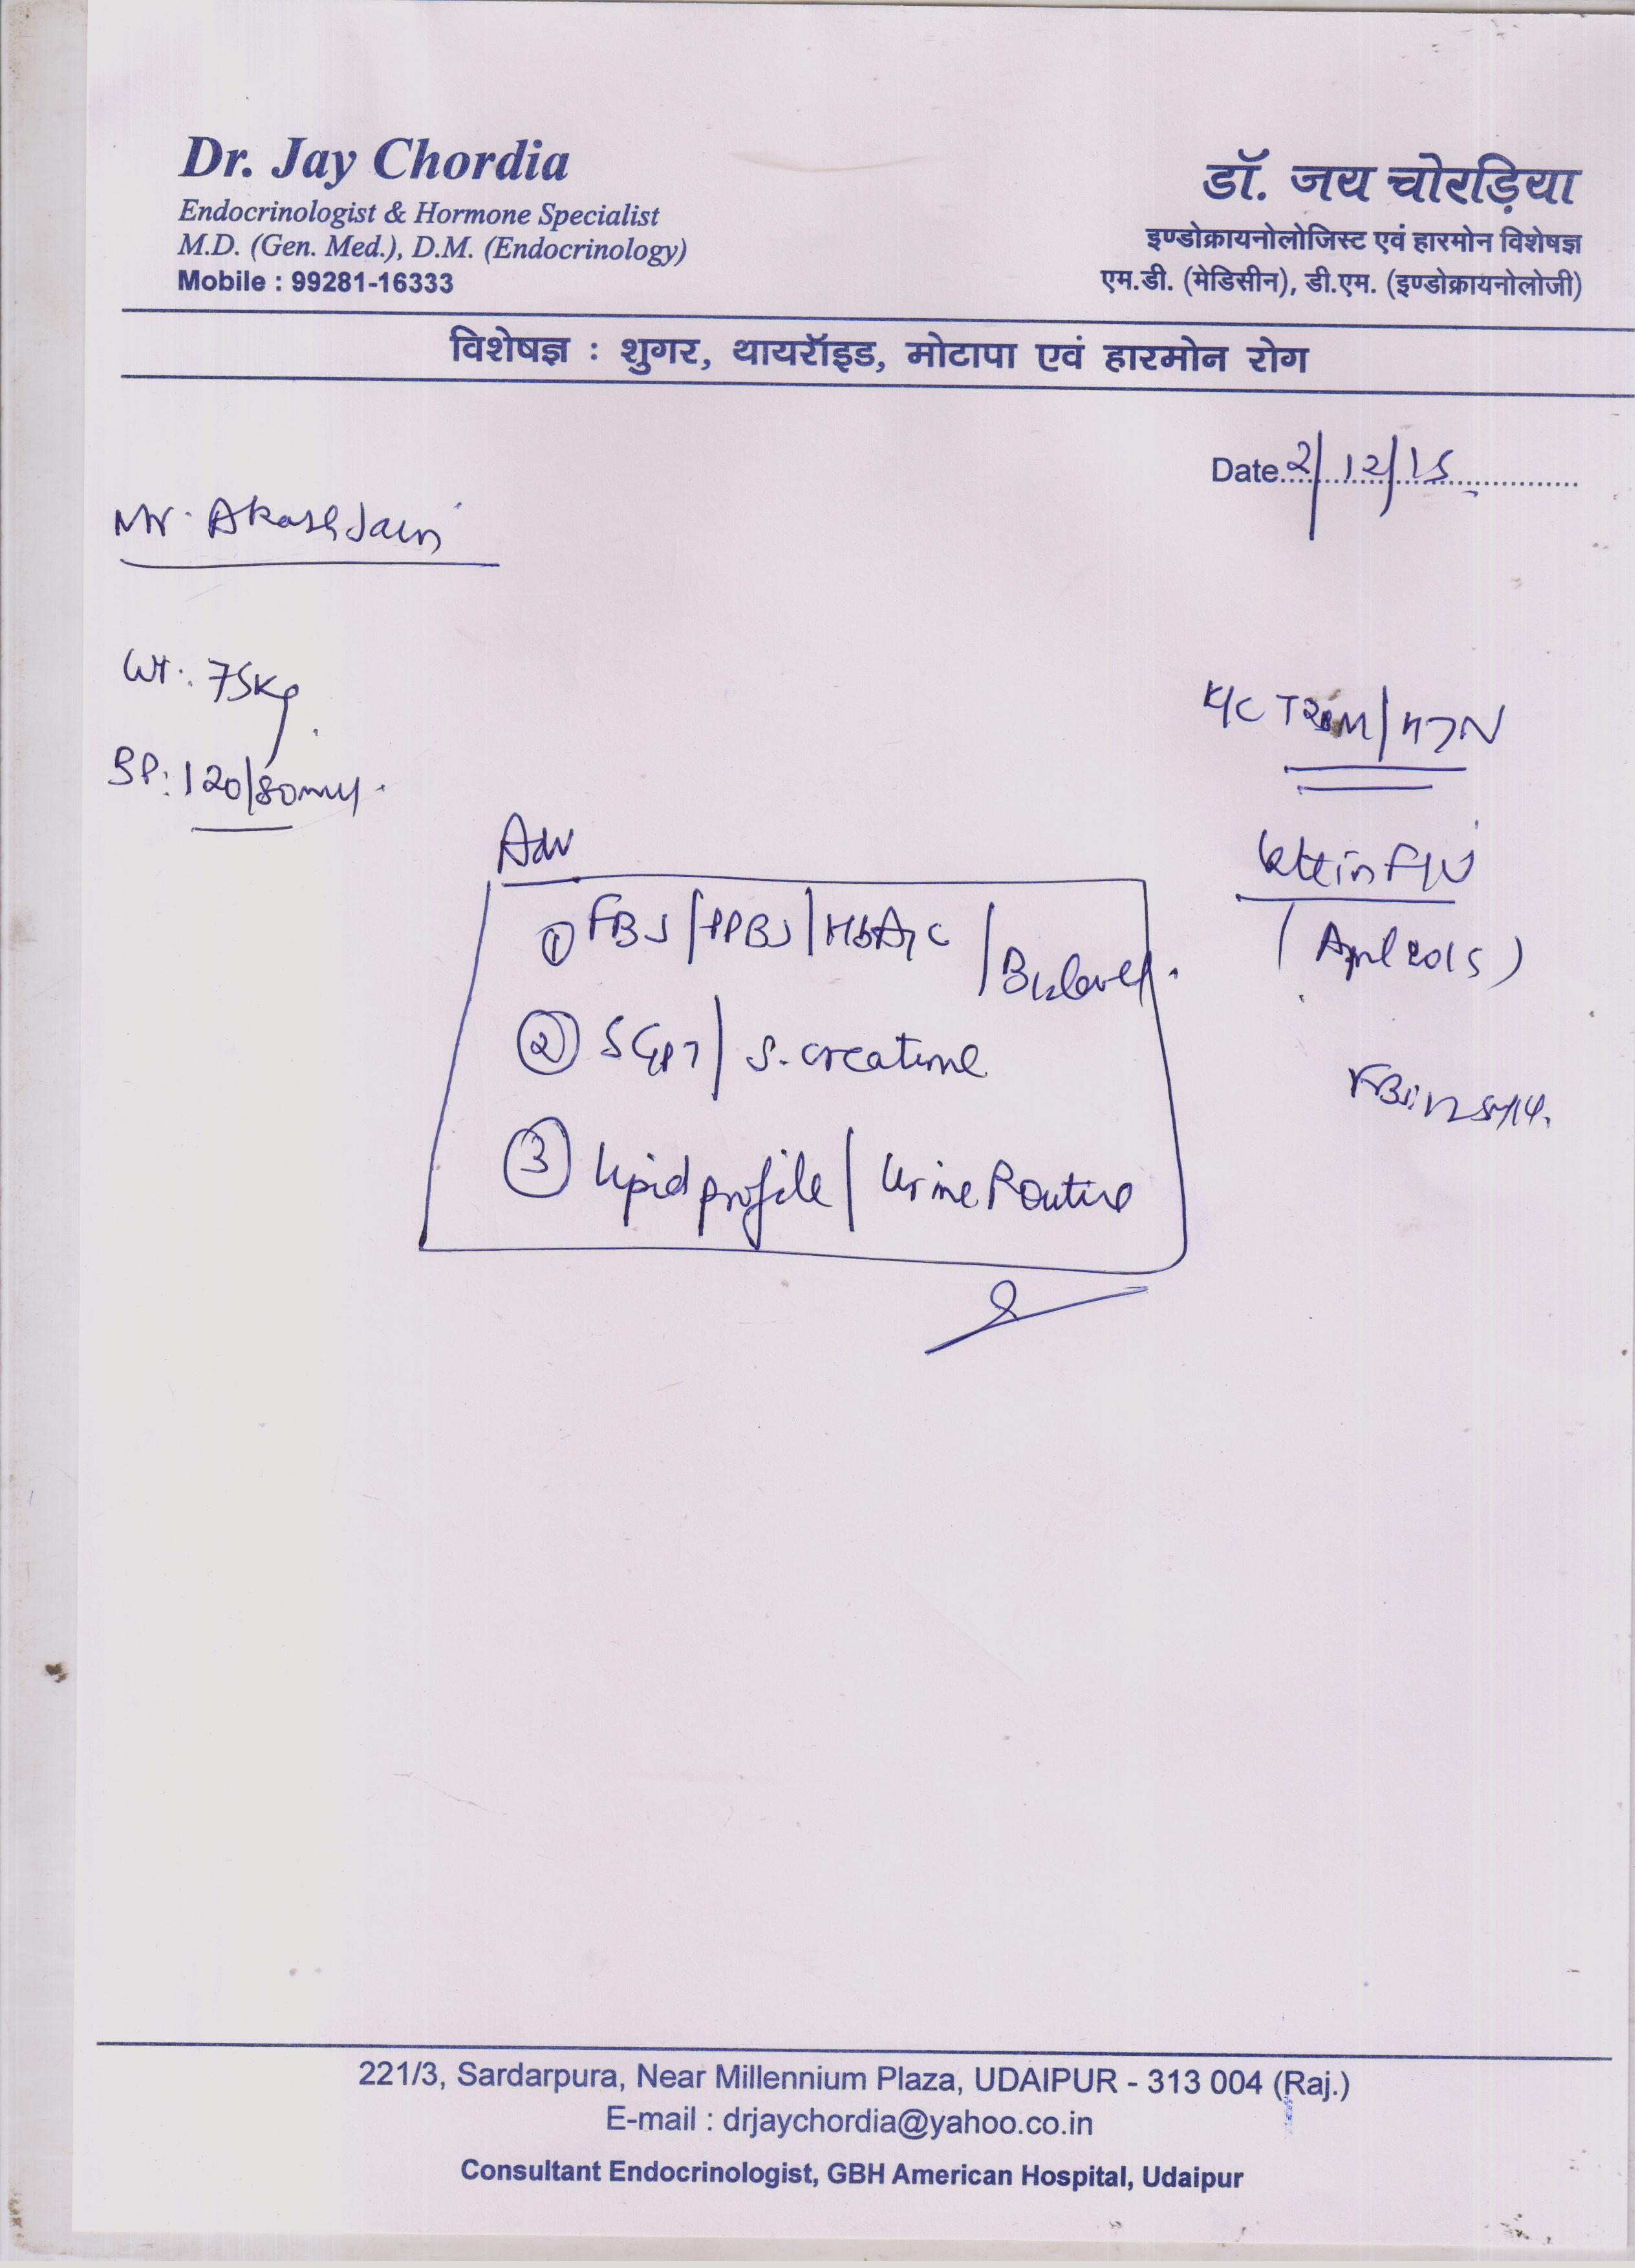 Dr. Jay Chordia
Endocrinologist & Hormone Specialist
M.D. (Gen. Med.), D.M. (Endocrinology)
Mobile : 99281-16333
डॉ. जय चोरड़िया
इण्डोक्रायनोलोजिस्ट एवं हारमोन विशेषज्ञ
एम.डी. (मेडिसीन), डी.एम. (इण्डोक्रायनोलोजी)
विशेषज्ञ : शुगर, थायरॉइड, मोटापा एवं हारमोन रोग
Date 2/12/15
Mr. Akash Jain
Wt: 75Kg
BP: 120/80
K/C T2DM/HTN
(April 2015)
Adv
① FBS/PPBS/HbA1c/B12 level
② SGPT/S. creatine
③ Lipid profile/Urine Routine
221/3, Sardarpura, Near Millennium Plaza, UDAIPUR - 313 004 (Raj.)
E-mail : drjaychordia@yahoo.co.in
Consultant Endocrinologist, GBH American Hospital, Udaipur